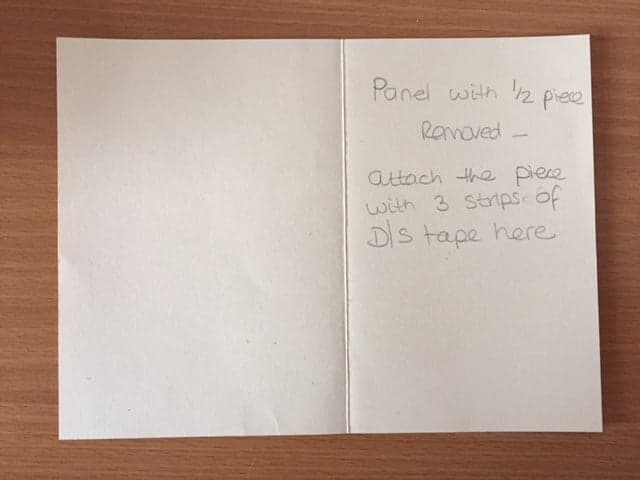 Panel with 1/2 piece
Removed –
attach the piece
with 3 strips of
D/S tape here